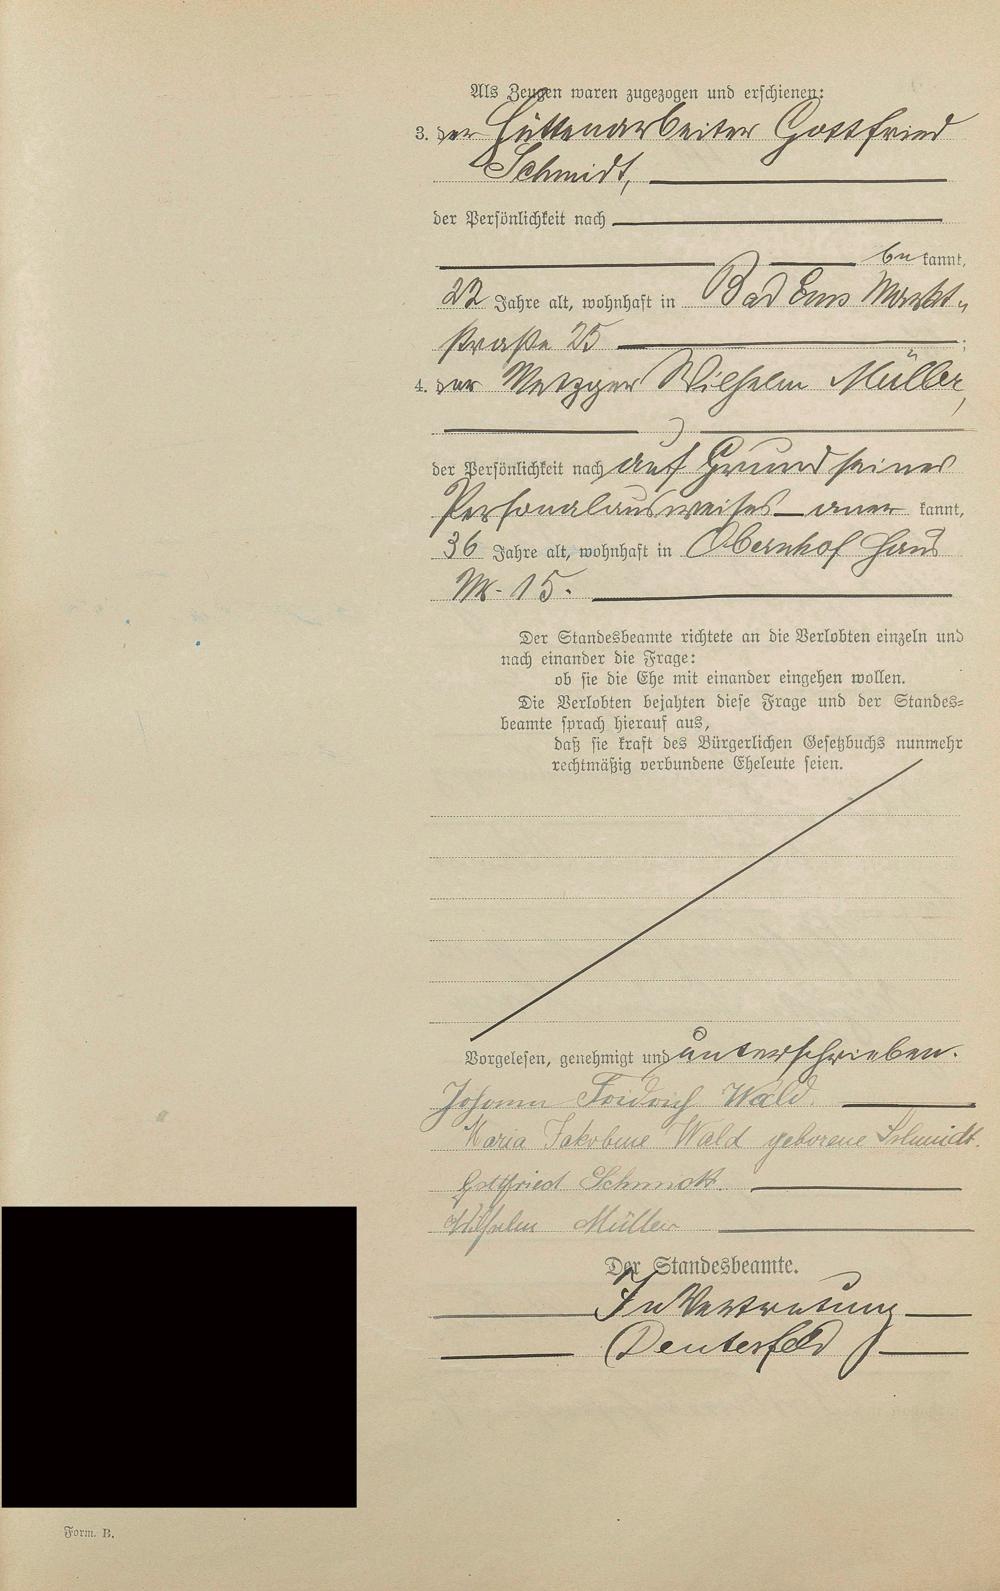 Als Zeugen waren zugezogen und erschienen:
3. der Hüttenarbeiter Gottfried
Schmidt,
der Persönlichkeit nach
be kannt,
22 Jahre alt, wohnhaft in Bad Ems Markt-
straße 25 ;
4. der Metzger Wilhelm Müller,
der Persönlichkeit nach auf Grund seines
Personalausweises aner kannt,
36 Jahre alt, wohnhaft in Obernhof Haus
Nr. 15.
Der Standesbeamte richtete an die Verlobten einzeln und
nach einander die Frage:
ob sie die Ehe mit einander eingehen wollen.
Die Verlobten bejahten diese Frage und der Standes-
beamte sprach hierauf aus,
daß sie kraft des Bürgerlichen Gesetzbuchs nunmehr
rechtmäßig verbundene Eheleute seien.
Vorgelesen, genehmigt und unterschrieben.
Johann Fridrich Wald.
Maria Jakobine Wald geborene Schmidt.
Gottfried Schmidt.
Wilhelm Müller
Der Standesbeamte.
In Vertretung
Form. B.